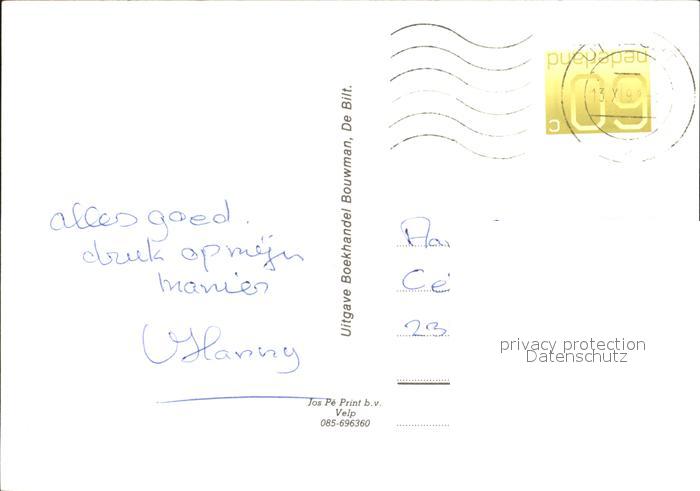 alles goed.
druk op mijn
manier
Hanny
Uitgave Boekhandel Bouwman, De Bilt.
Jos Pé Print b.v.
Velp
085-696360
nederland
60 c
13 X
Cé
23
privacy protection
Datenschutz